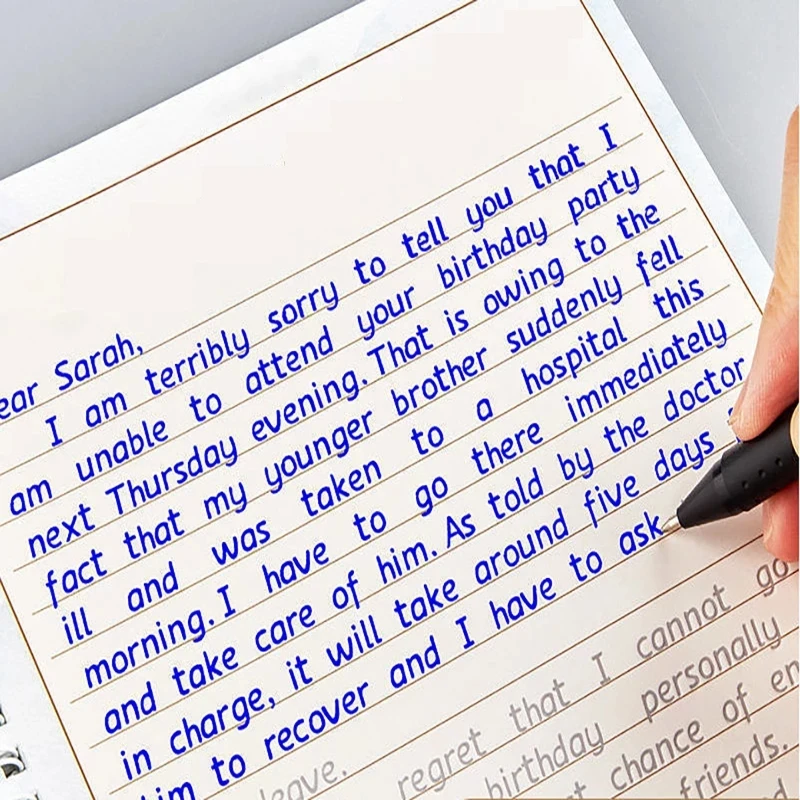 ear Sarah,
I am terribly sorry to tell you that I
am unable to attend your birthday party
next Thursday evening. That is owing to the
fact that my younger brother suddenly fell
ill and was taken to a hospital this
morning. I have to go there immediately
and take care of him. As told by the doctor
in charge, it will take around five days
him to recover and I have to ask
leave. regret that I cannot go
birthday personally
chance of en
friends.